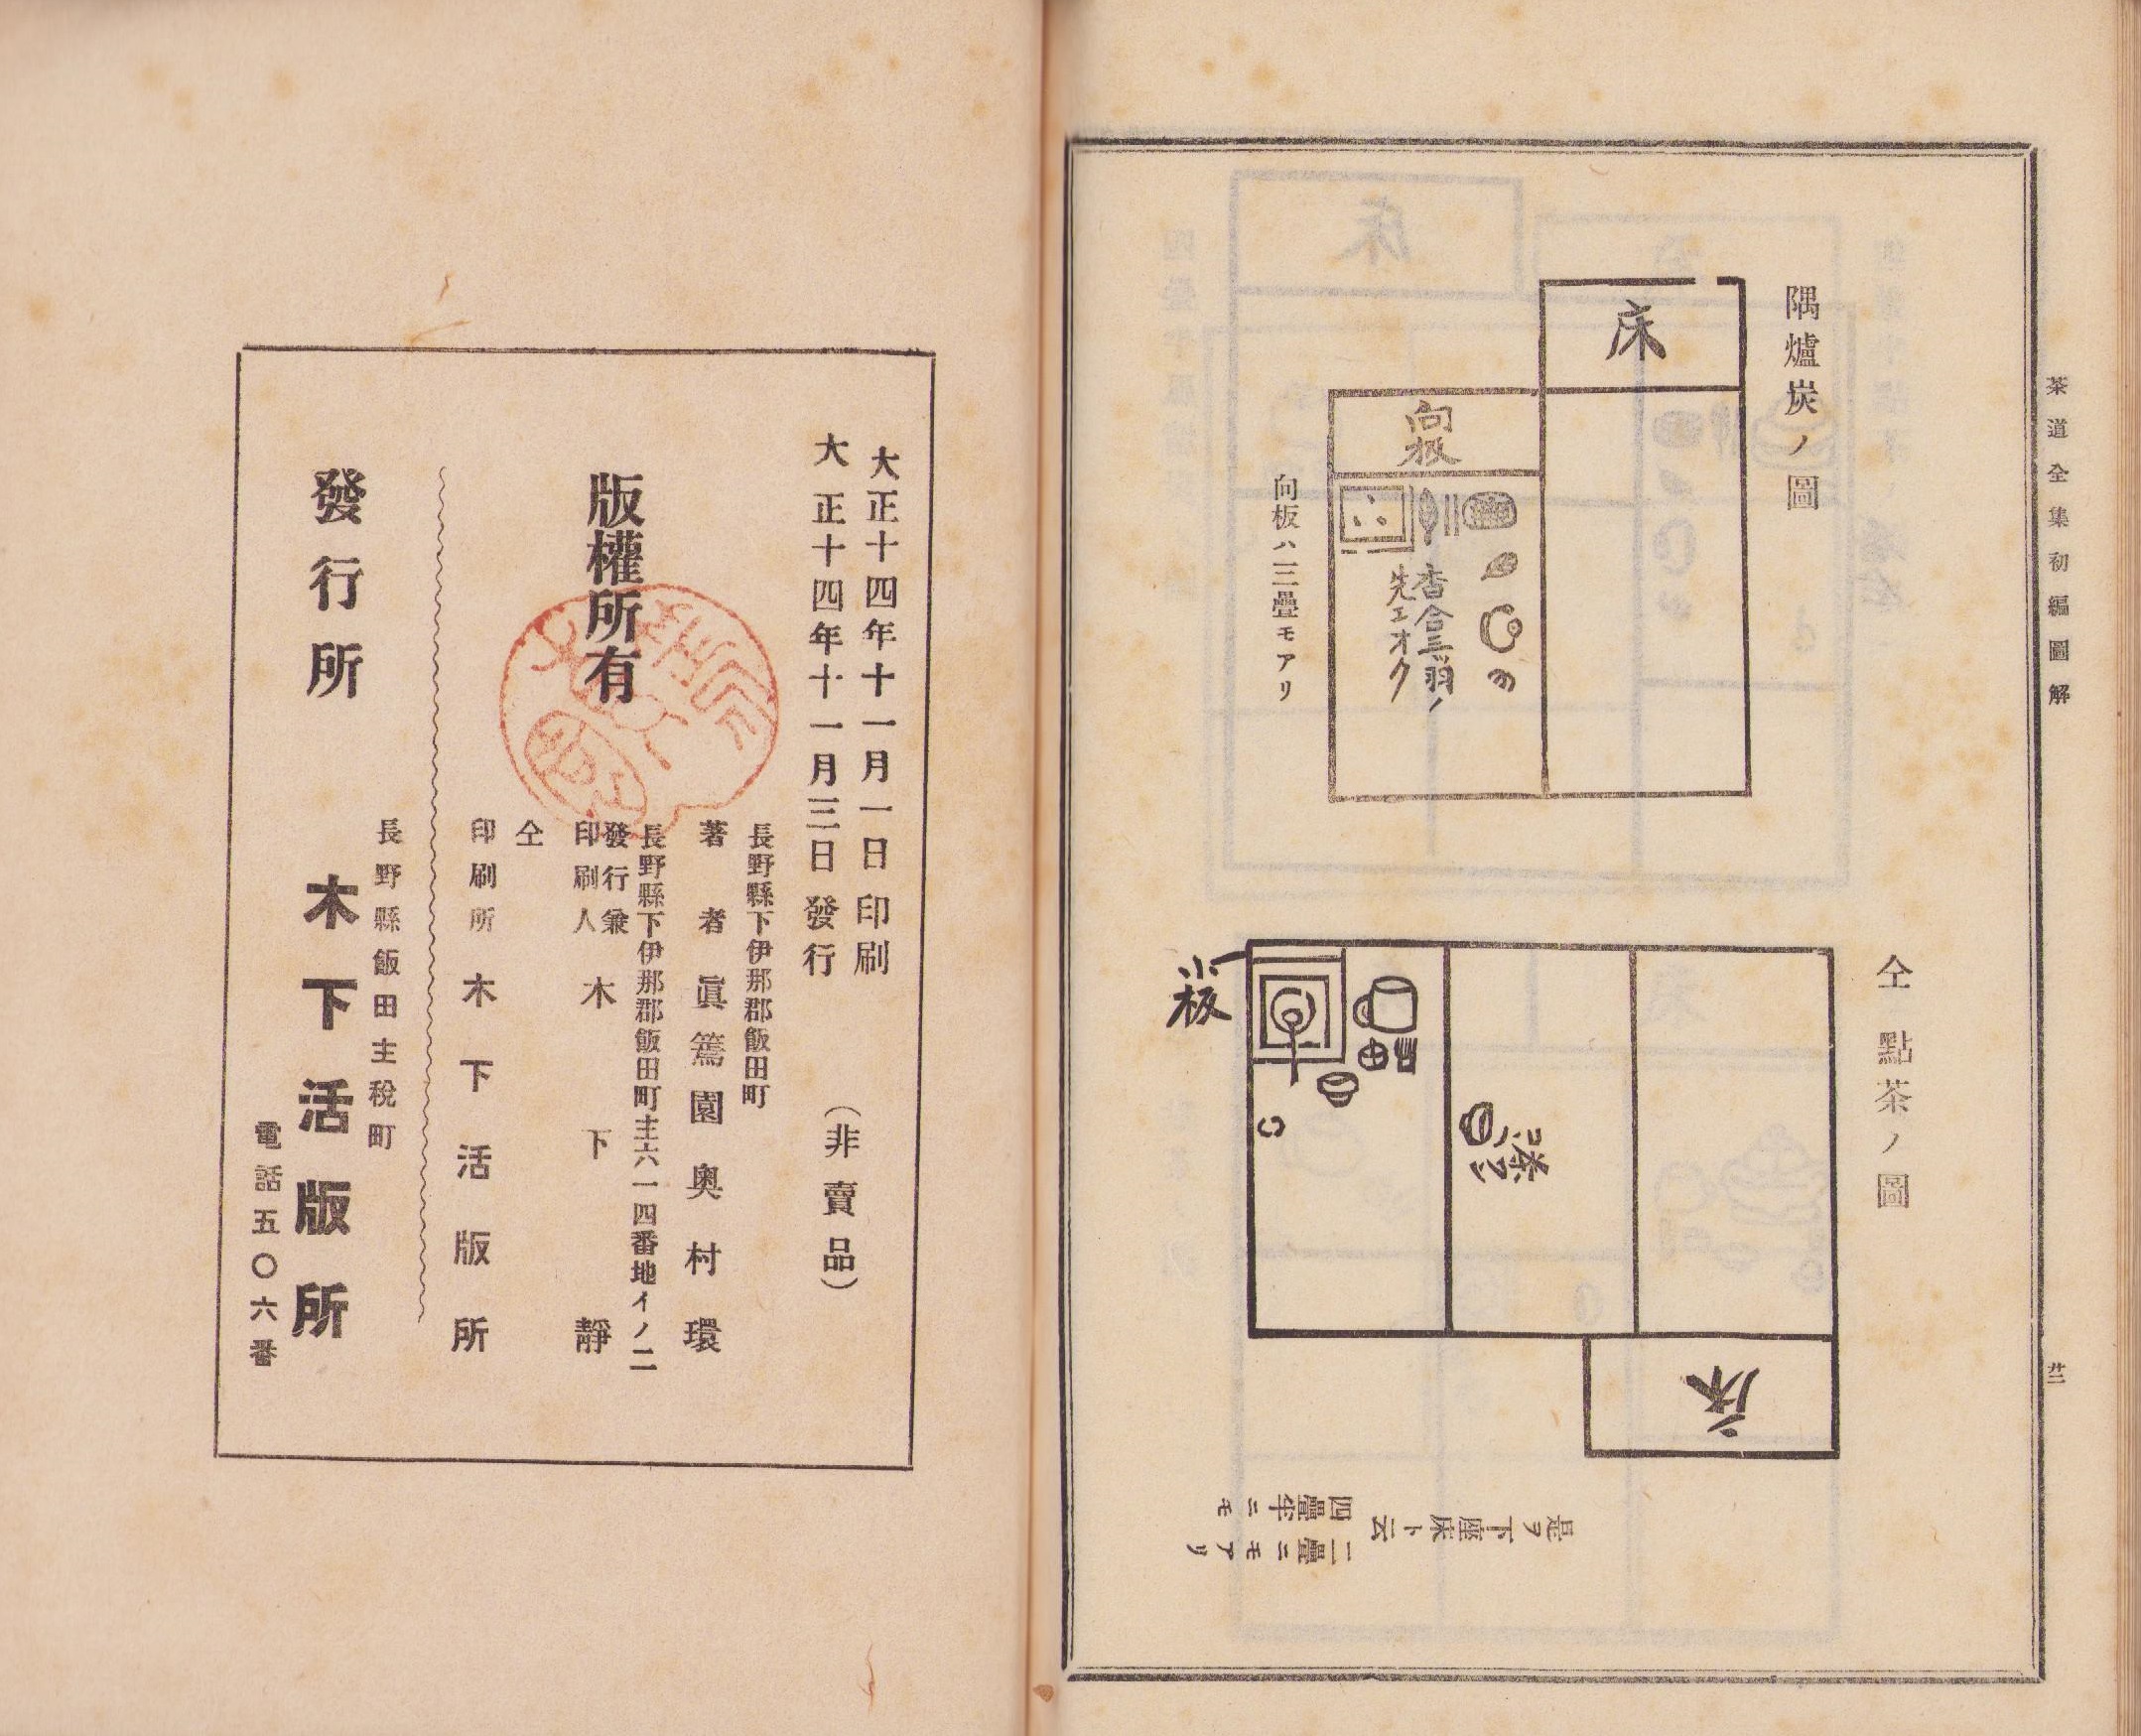 茶道全集初編圖解
廿二
隅爐炭ノ圖
床
向板
香合三ツ羽ノ
先エオク
向板ハ二三疊モアリ
仝點茶ノ圖
小板
茶
コ
床
是ヲ下座床ト云
四疊半ニモ
二疊ニモアリ
大正十四年十一月一日印刷
大正十四年十一月三日發行
（非賣品）
長野縣下伊那郡飯田町
著者 眞篶園 奥村環
長野縣下伊那郡飯田町主六一四番地イノ二
發行兼
印刷人 木下靜
仝
印刷所 木下活版所
版權所有
長野縣飯田主稅町
發行所 木下活版所
電話五〇六番